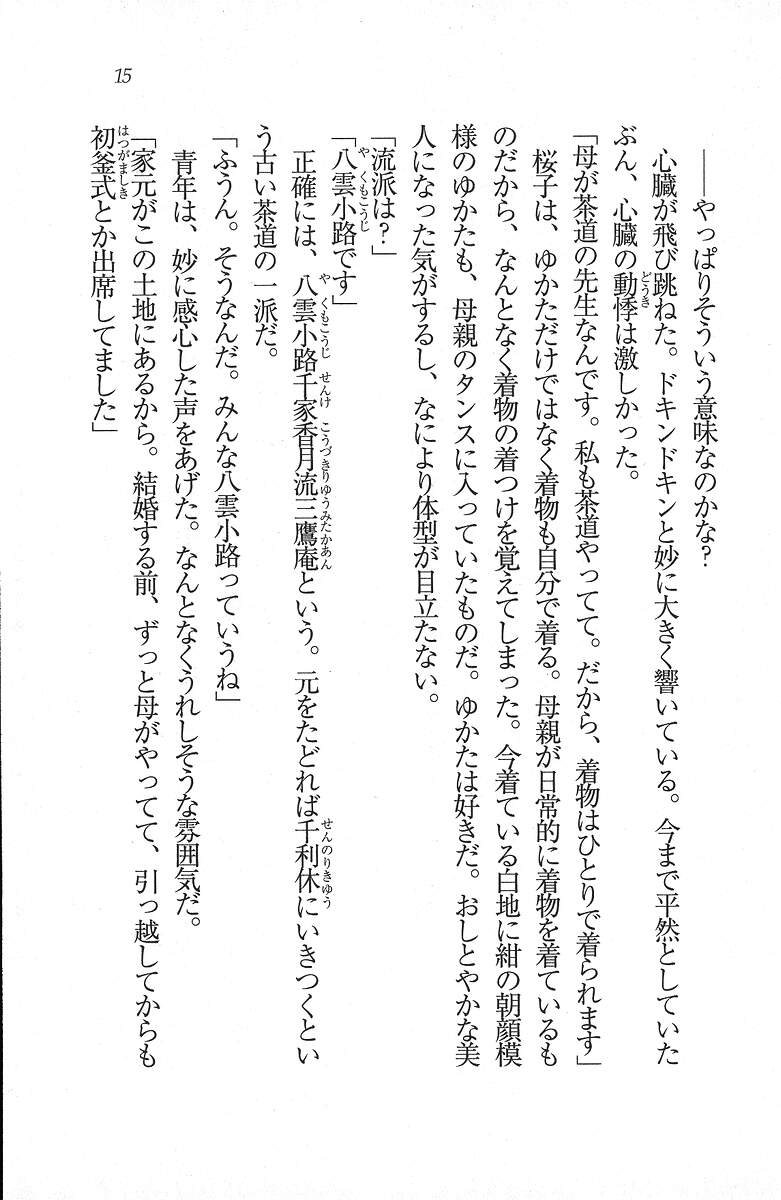 15
――やっぱりそういう意味なのかな？
心臓が飛び跳ねた。ドキンドキンと妙に大きく響いている。今まで平然としていた
ぶん、心臓の動悸は激しかった。
「母が茶道の先生なんです。私も茶道やってて。だから、着物はひとりで着られます」
桜子は、ゆかただけではなく着物も自分で着る。母親が日常的に着物を着ているも
のだから、なんとなく着物の着つけを覚えてしまった。今着ている白地に紺の朝顔模
様のゆかたも、母親のタンスに入っていたものだ。ゆかたは好きだ。おしとやかな美
人になった気がするし、なにより体型が目立たない。
「流派は？」
「八雲小路です」
正確には、八雲小路千家香月流三鷹庵という。元をたどれば千利休にいきつくとい
う古い茶道の一派だ。
「ふうん。そうなんだ。みんな八雲小路っていうね」
青年は、妙に感心した声をあげた。なんとなくうれしそうな雰囲気だ。
「家元がこの土地にあるから。結婚する前、ずっと母がやってて、引っ越してからも
初釜式とか出席してました」